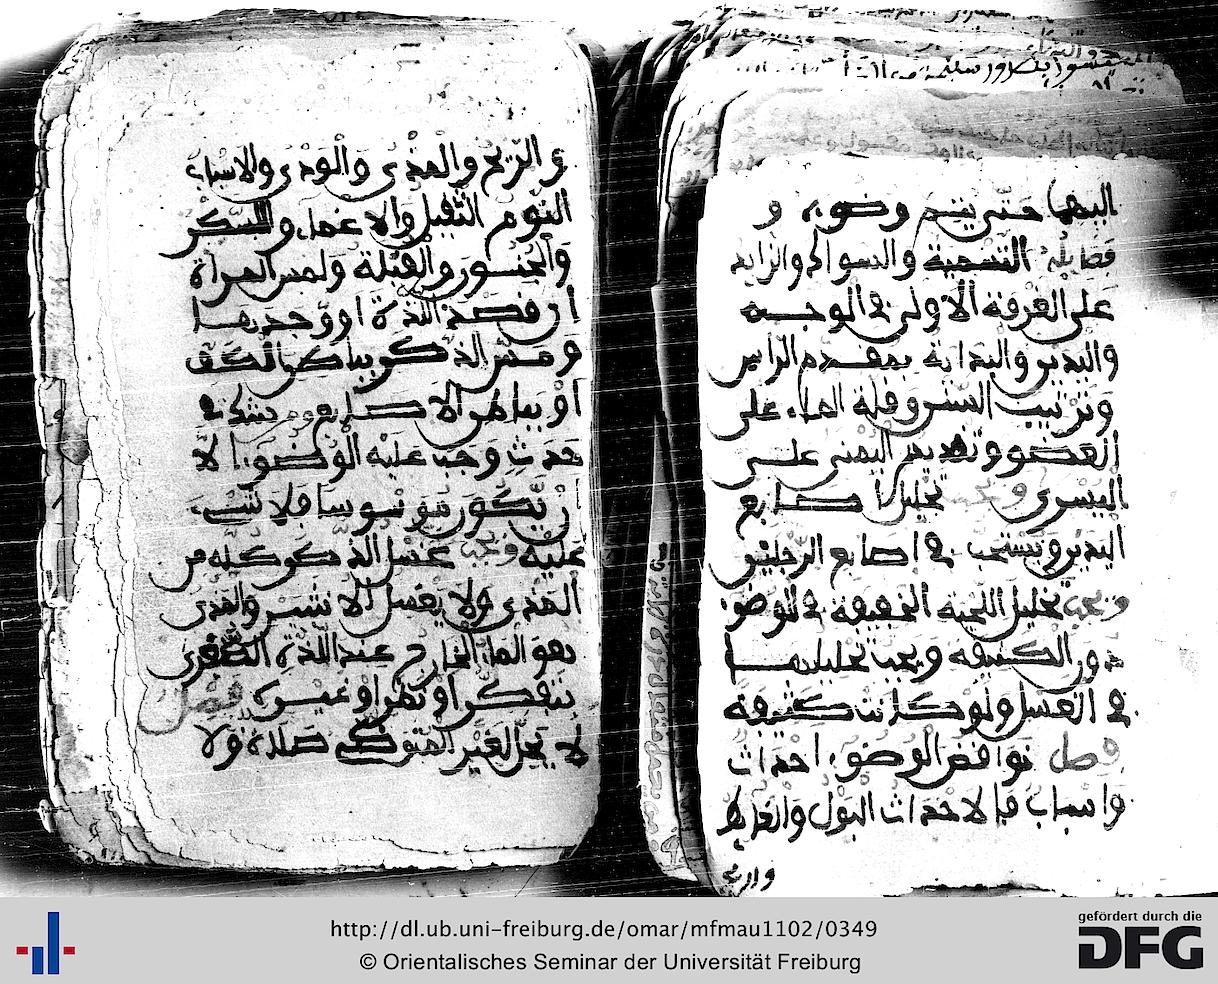 اليها حتى يتم وضوءه و
فضايله التسمية والسواك والزايد
على الغرفة الاولى في الوجه
واليدين والبداية بمقدم الراس
وترتيب السنن وقلة الماء على
العضو وتقديم اليمنى على
اليسرى ويجب تخليل أصابع
اليدين ويستحب في اصابع الرجلين
ويجب تخليل اللحية الخفيفة في الوضوء
دون الكثيفة ويجب تخليلها
في الغسل ولو كانت كثيفة
فصل نواقض الوضوء احداث
واسباب فالاحداث البول والغايط
والريح
والريح والمذي والودي والاسباب
النوم الثقيل والاغماء والسكر
والجنون والقبلة ولمس المرأة
ان قصد اللذة او وجدها
ومس الذكر بباطن الكف
او بباطن الاصابع ومن شك في
حدث وجب عليه الوضوء الا
ان يكون موسوسا فلا شيء
عليه ويجب غسل الذكر كله من
المذي ولا يغسل الانثيين والمذي
هو الماء الخارج عند اللذة الصغرى
بتفكر او نظر او غيره فصل
لا يحل لغير المتوضئ صلاة ولا
http://dl.ub.uni-freiburg.de/omar/mfmau1102/0349
© Orientalisches Seminar der Universität Freiburg
gefördert durch die
DFG